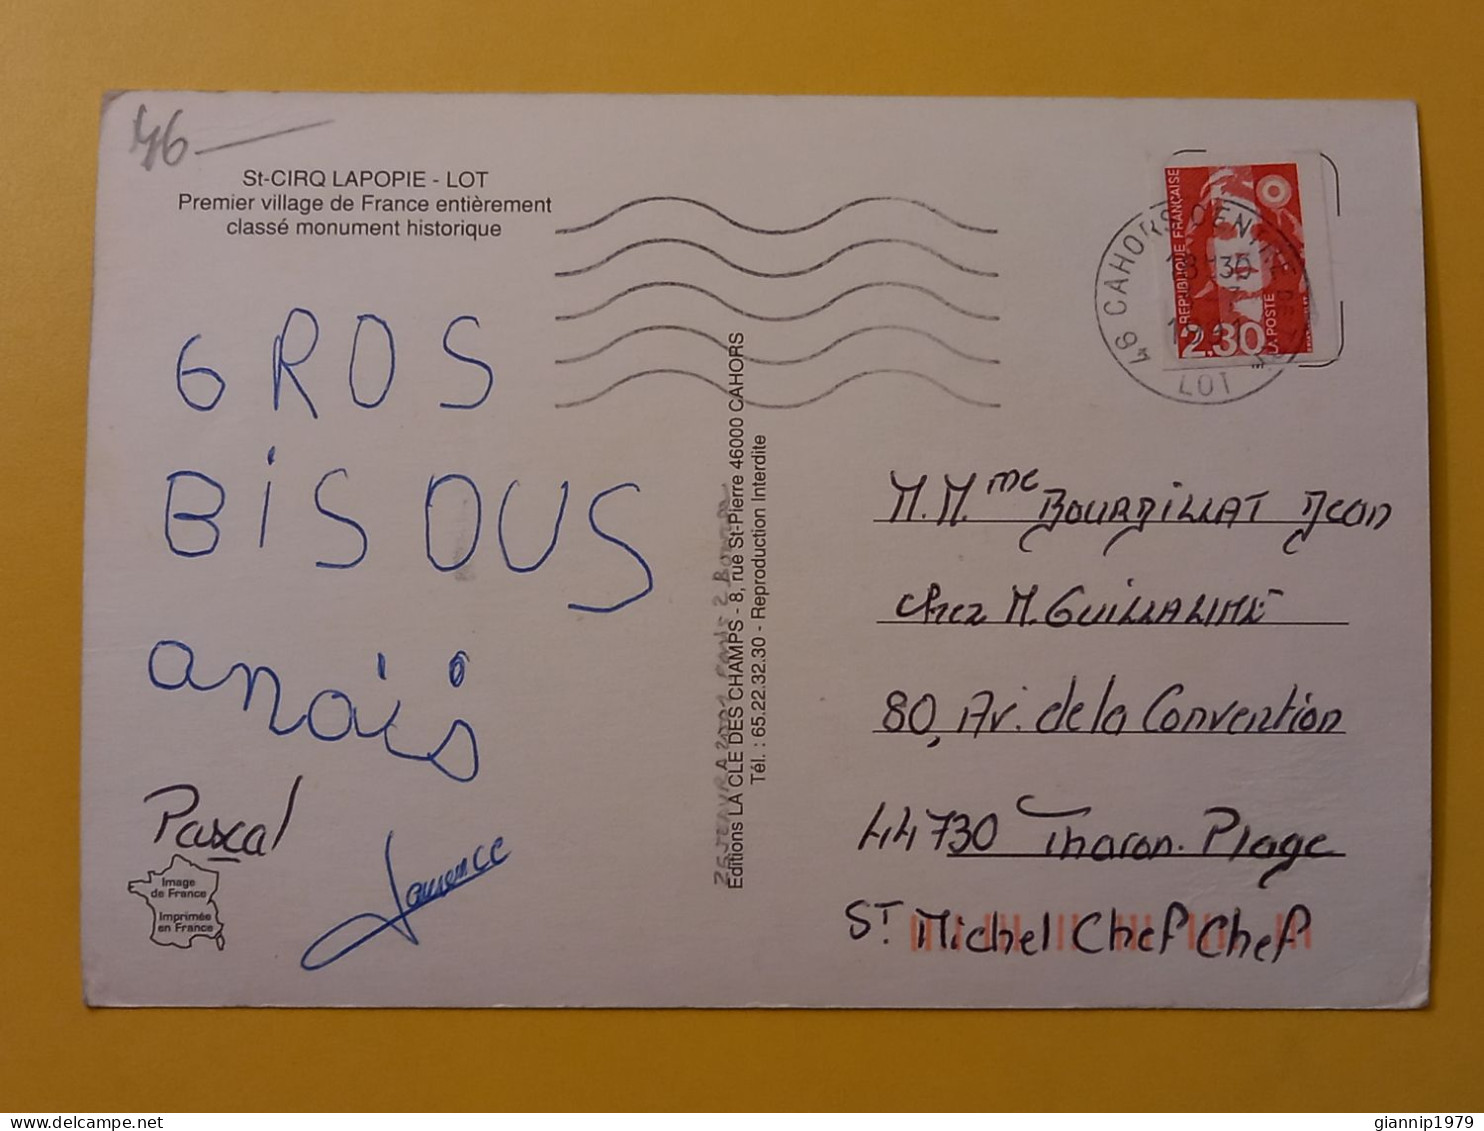 46
St-CIRQ LAPOPIE - LOT
Premier village de France entièrement
classé monument historique
GROS
BiSOUS
anaïs
Pascal
Laurence
Image
de France
Imprimée
en France
Editions LA CLE DES CHAMPS - 8, rue St-Pierre 46000 CAHORS
Tél. : 65.22.32.30 - Reproduction Interdite
46 CAHORS
LOT
REPUBLIQUE FRANÇAISE
2.30
LA POSTE
M. Mme BOURDILLAT Jean
chez M. GUILLAUME
80, Av. de la Convention
44730 Tharon. Plage
ST Michel Chef Chef
giannip1979